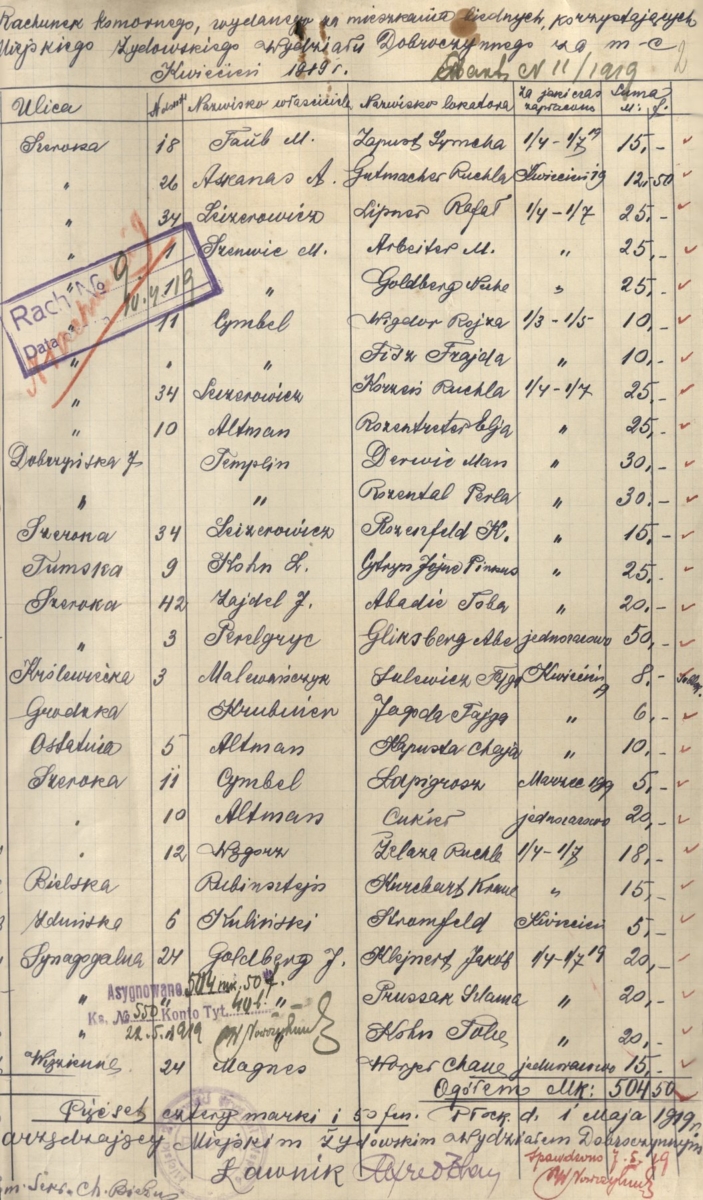 Rachunek komornego, wydanego za mieszkania biednych, korzystających
Miejskiego Żydowskiego Wydziału Dobroczynnego za m-c
Kwiecień 1919 r.
N 11/1919 2
Ulica Nazwisko właściciela Nazwisko lokatora Za jaki czas zapłacono Suma M. f.
Szeroka 18 Taub M. Zapust Symcha 1/4 - 1/7 19 15,-
" 26 Askanas A. Gutmacher Ruchla Kwiecień 19 12,50
" 34 Leizerowicz Lipner Rafał 1/4 - 1/7 25,-
" 1 Szenwic M. Arbeiter M. " 25,-
" " Goldberg " 25,-
Rach. No 9
Data 10.4.19
" 11 Cymbel Wigdor Rojza 1/3 - 1/5 10,-
" " " Fisz Frajda " 10,-
" 34 Leizerowicz Korzeń Ruchla 1/4 - 1/7 25,-
" 10 Altman Rozentreter Elja " 25,-
Dobrzyńska 7 Templin Derwic Man " 30,-
" " Rozental Perla " 30,-
Szeroka 34 Leizerowicz Rozenfeld K. " 15,-
Tumska 9 Kohn L. Cytryn Jojne Pinkus " 25,-
Szeroka 42 Zajdel J. Abadie Toba " 20,-
" 3 Perelgryc Gliksberg Abe jednorazowo 50,-
Królewiecka 3 Malewańczyk Sulewicz Fajga Kwiecień 19 8,-
Grodzka Jagoda Fajga " 6,-
Ostatnia 5 Altman Kapusta Chaja " 10,-
Szeroka 11 Cymbel Łapigrosz Marzec 1919 5,-
" 10 Altman Cukier jednorazowo 20,-
" 12 Wygorz Żelaza Ruchla 1/4 - 1/7 18,-
Bielska Rubinsztejn " 15,-
Zduńska 6 Kuliński Stromfeld Kwiecień 5,-
Synagogalna 24 Goldberg J. Klejnert Jakób 1/4 - 1/7 19 20,-
" " " Prussak " 20,-
" " Kohn " 20,-
Asygnowane 504 mk. 50 f.
Ks. No 550 Konto Tyt.
22.5.1919
Więzienna 24 Magnes jednorazowo 15,-
Ogółem Mk: 504 50
Pięćset cztery marki i 50 fen. Płock d. 1 Maja 1919 r.
Zarządzający Miejskim Żydowskim Wydziałem Dobroczynnym
Ławnik
Sprawdzono 7.5.19